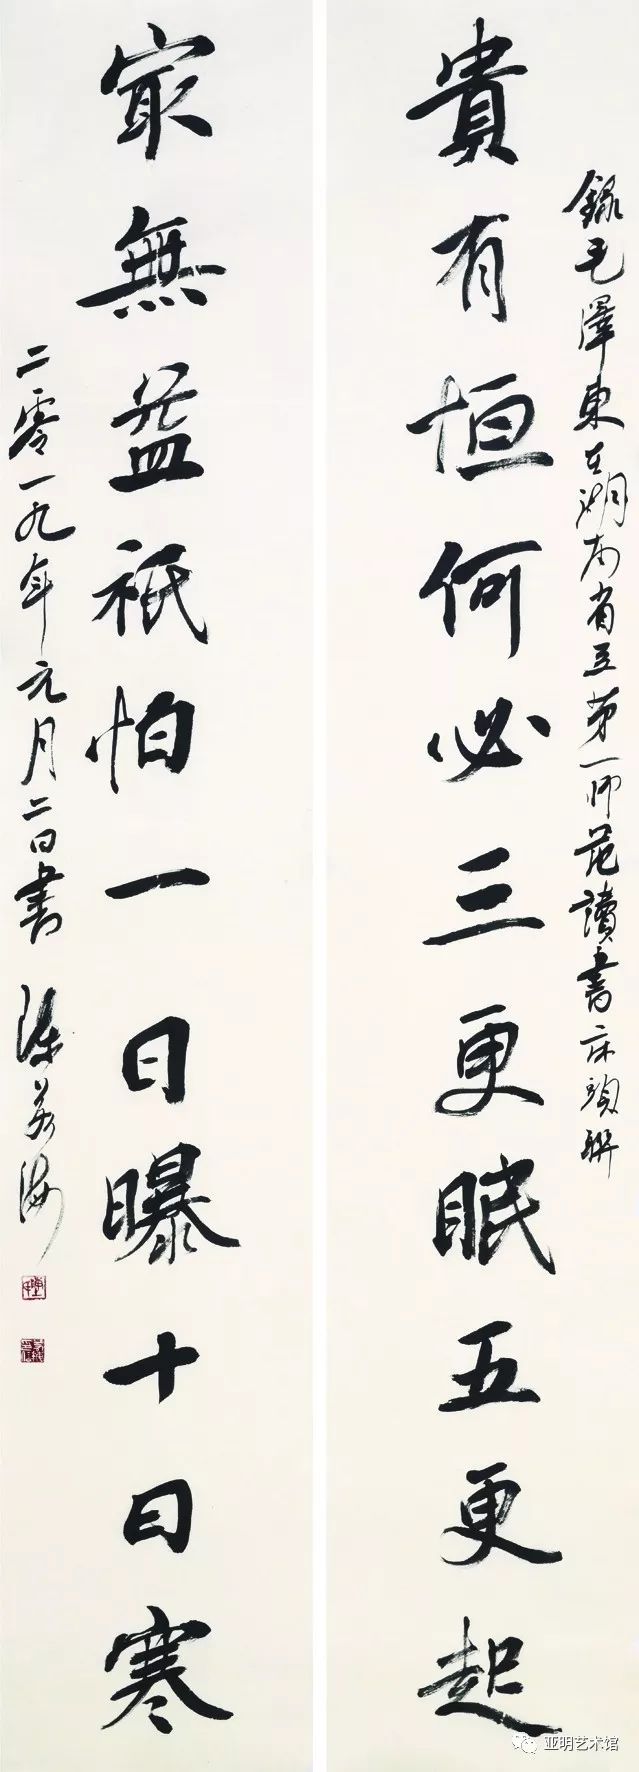 錄毛澤東在湖南省立第一師范讀書床頭聯
貴有恒何必三更眠五更起
㝡無益祇怕一日曝十日寒
二零一九年元月二日書 陳海
亚明艺术馆